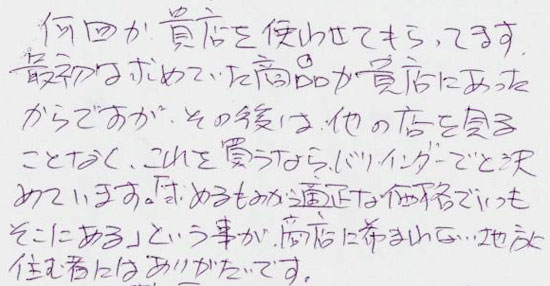 何回か貴店を使わせてもらってます。
最初は求めていた商品が貴店にあった
からですが、その後は、他の店を見る
ことなく、これを買うなら、バリ・インダーでと決
めています。「求めるものが適正な価格でいつも
そこにある」という事が、商店に恵まれない地方に
住む者にはありがたいです。